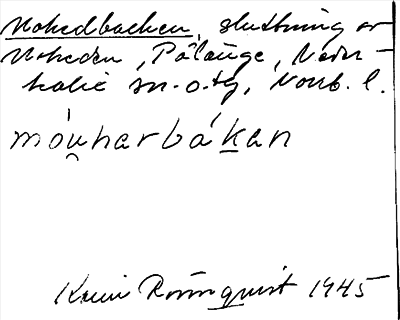 Mohedbacken, sluttning av
Moheden, Pålänge, Neder-
kalix sn. o. tg, Norrb. l.
móu̯harbákan
Romquist 1945